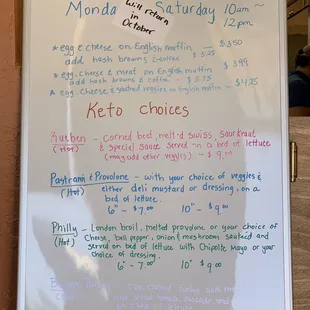 Monda Saturday 10am ~
12pm
will return
in
October
* egg & cheese on English muffin — $3.50
add hash browns & coffee - $5.25
* egg, cheese & meat on English muffin $3.99
add hash browns & coffee - $5.75
* egg, cheese & sauteed veggies on English muffin - $4.25
Keto Choices
Rueben - corned beef, melt'd swiss, saurkraut
(Hot) & special sauce served in a bed of lettuce
(may add other veggies) - $9.00
Pastrami & Provolone - with your choice of veggies &
(Hot) either deli mustard or dressing, on a
bed of lettuce.
6" - $7.00 10" - $9.00
Philly - London broil, melted provolone or your choice of
(Hot) Cheese, bell pepper, onion & mushroom sauteed and
served on bed of lettuce with Chipotle Mayo or your
choice of dressing.
6" - 7.00 10" $9.00